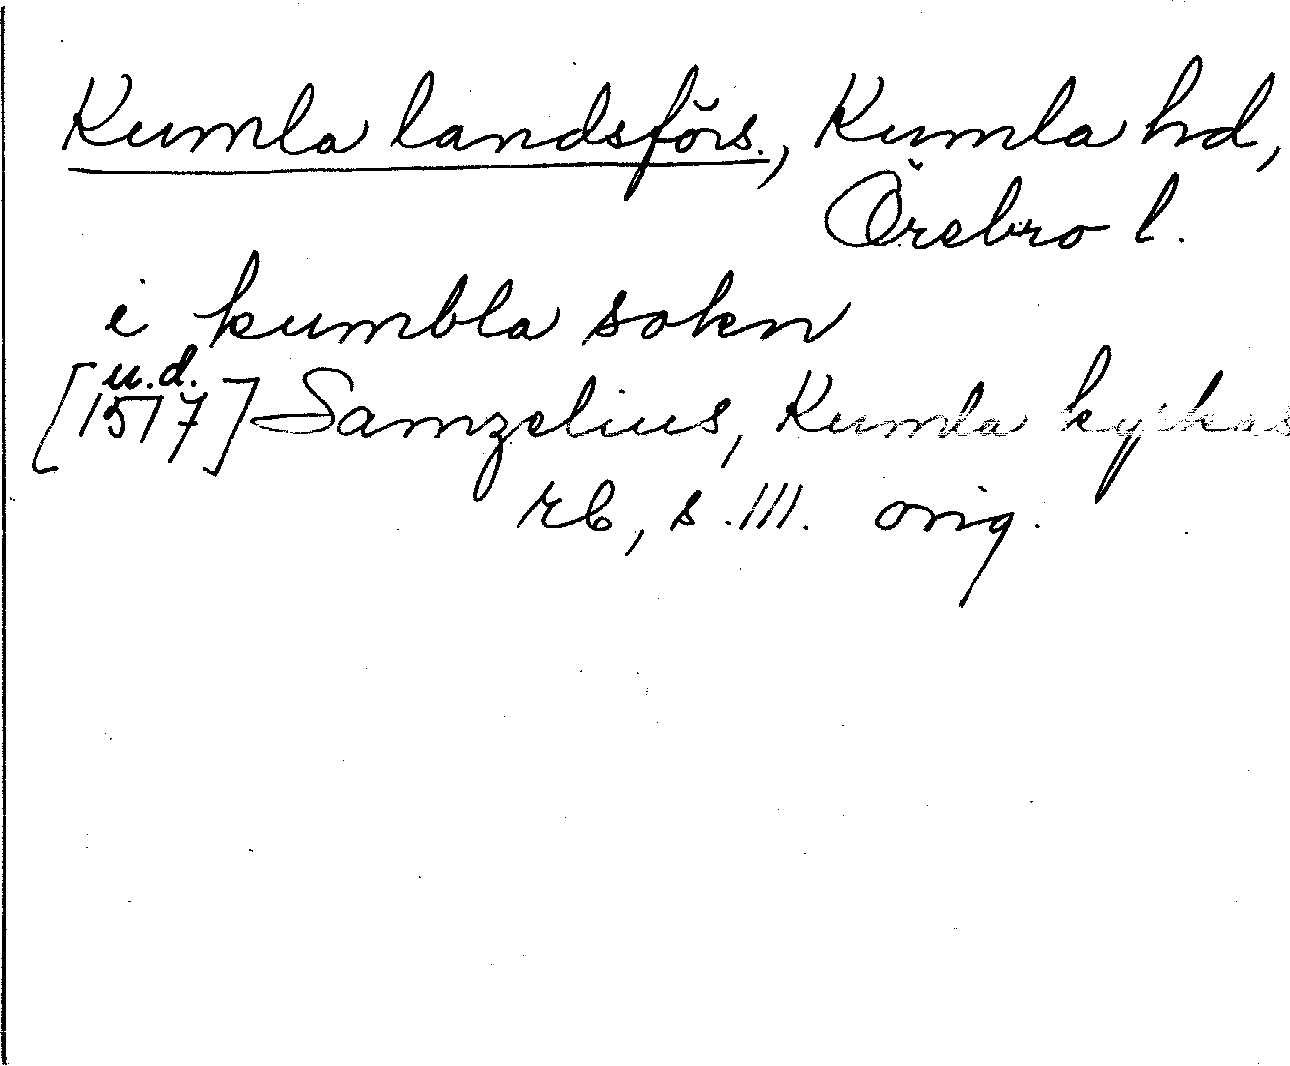 Kumla landsförs., Kumla hd,
Örebro l.
i kumbla sokn
u.d.
[1517] Samzelius, Kumla kyrkas
rb, s. III. orig.